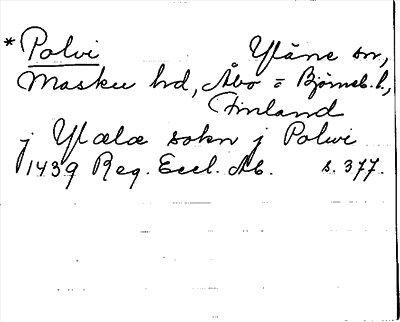 *Polvi Yläne sn,
Masku hd, Åbo = Björneb. l.,
Finland
j Ylælæ sokn j Polwi
1439 Reg. Eccl. Ab. s. 377.